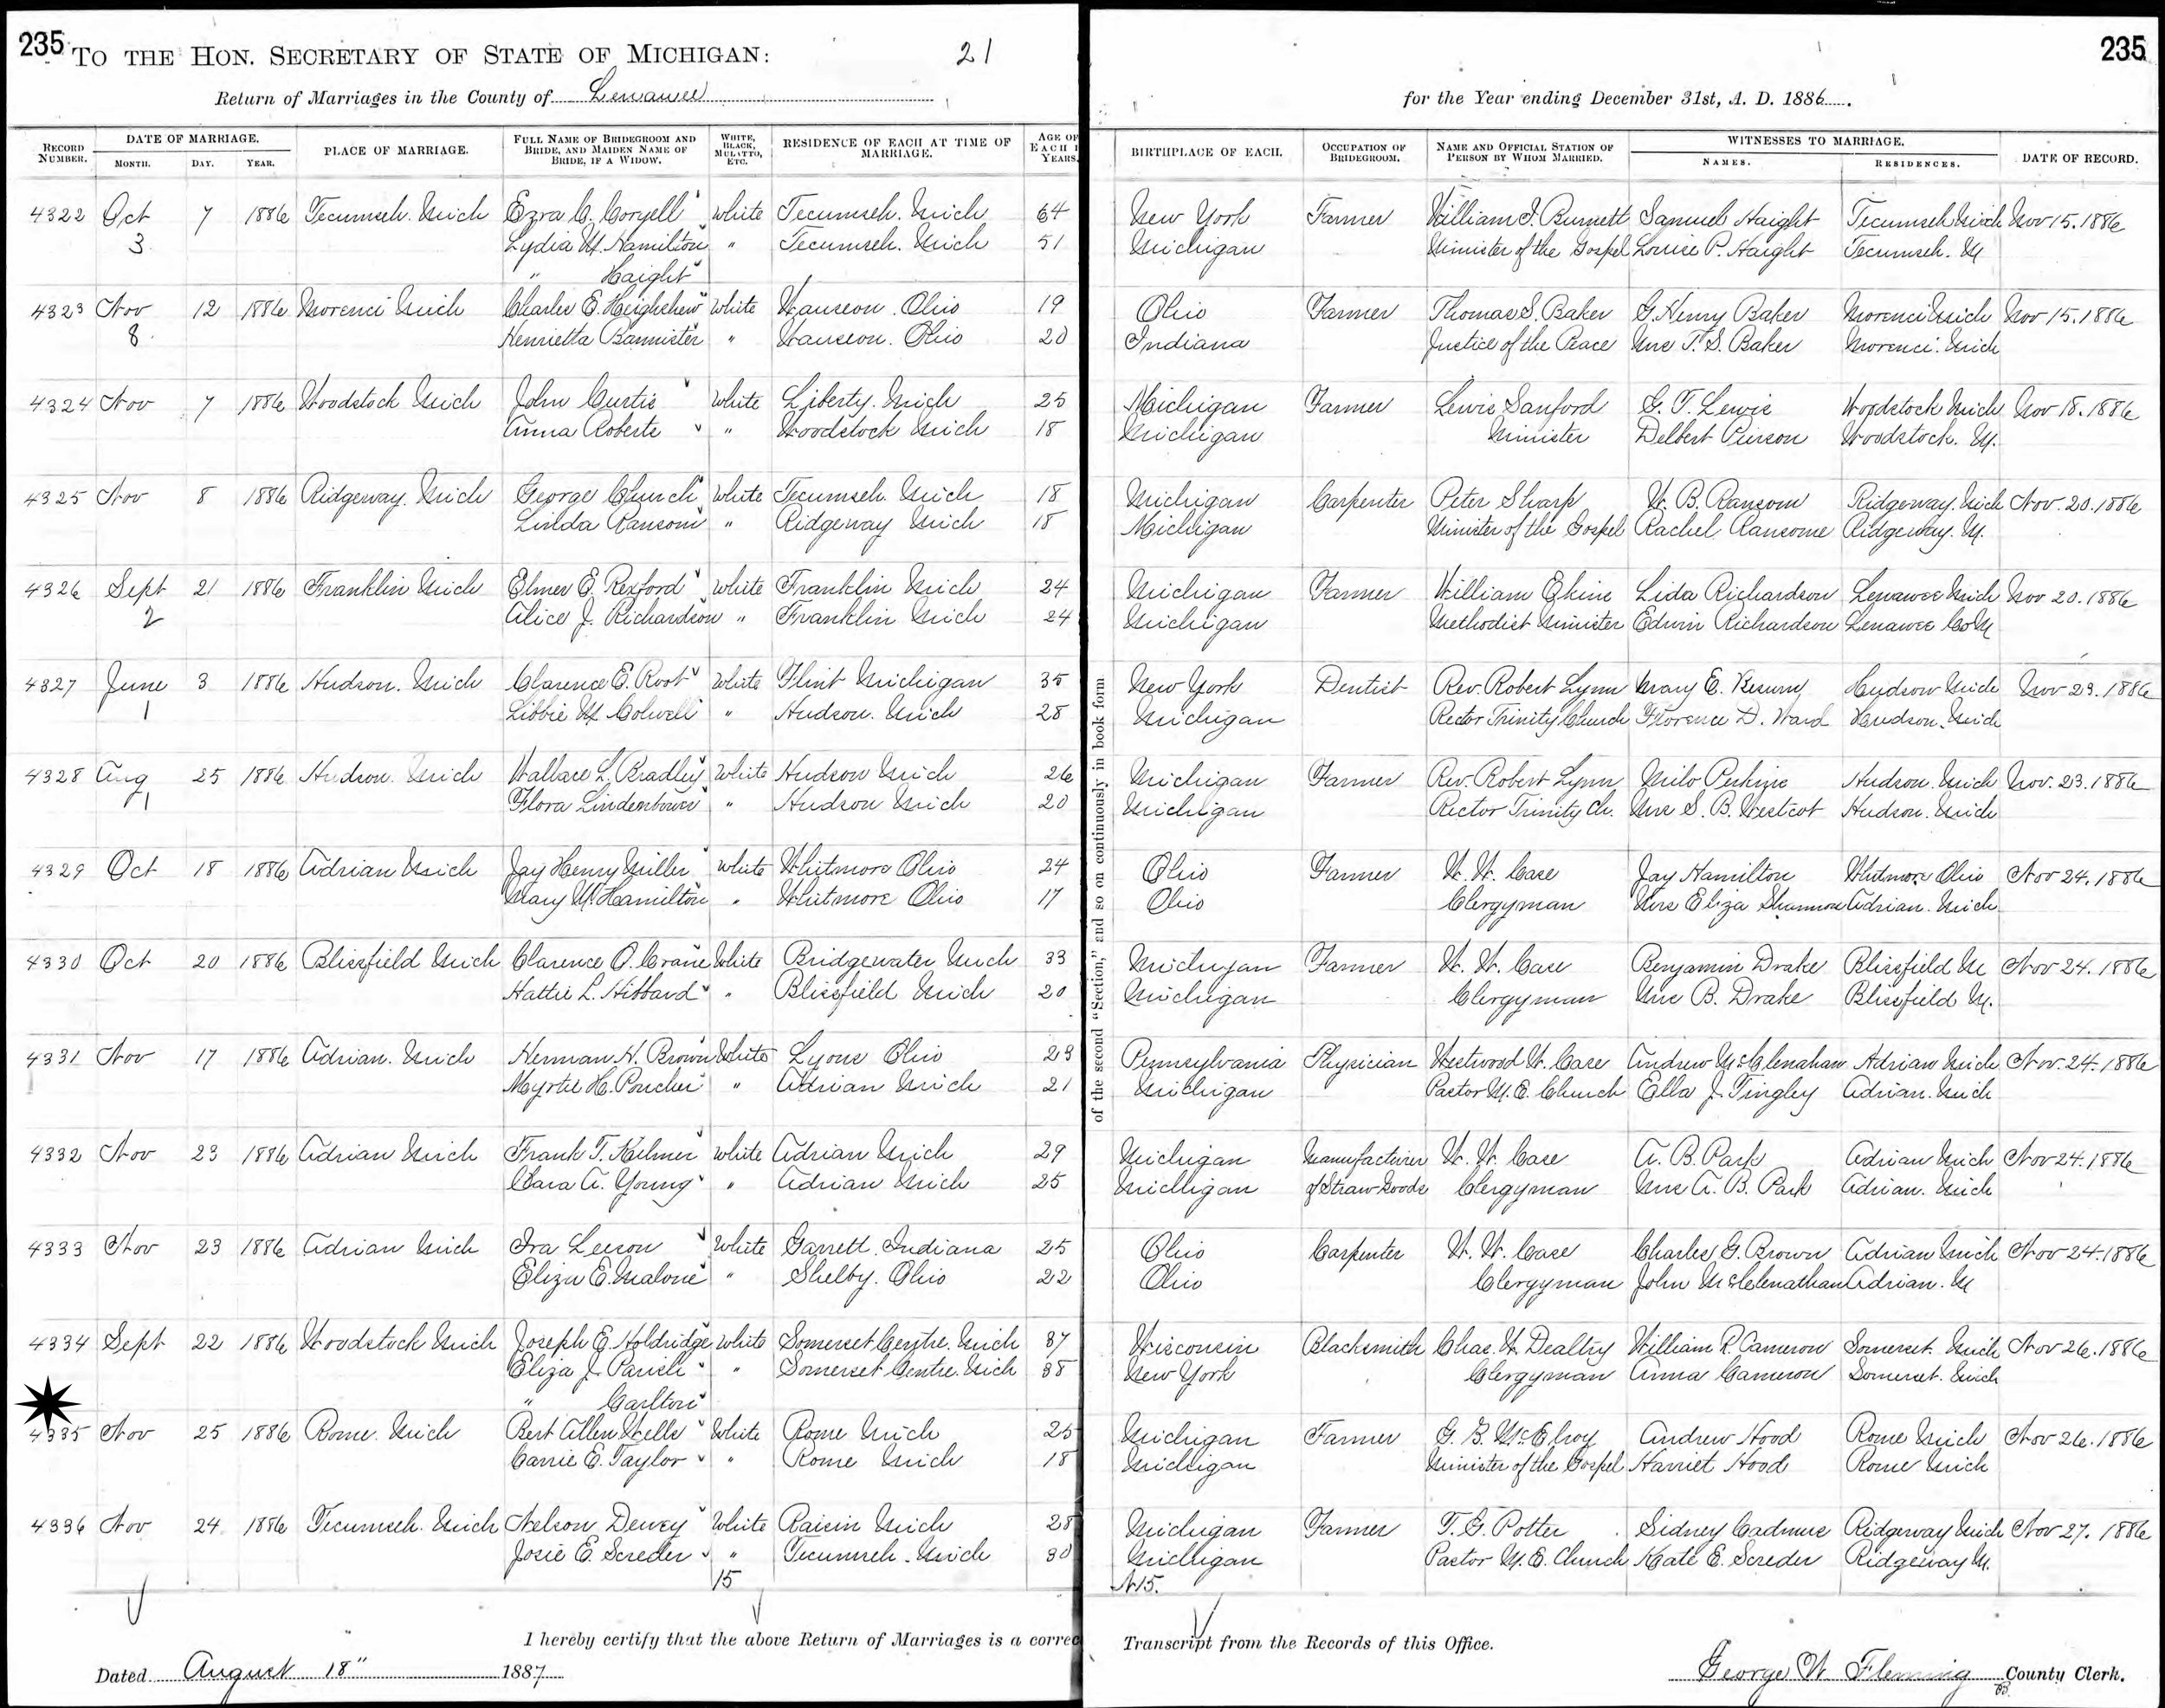 235 TO THE HON. SECRETARY OF STATE OF MICHIGAN: 21 235
Return of Marriages in the County of Lenawee for the Year ending December 31st, A. D. 1886.
RECORD NUMBER. DATE OF MARRIAGE. MONTH. DAY. YEAR. PLACE OF MARRIAGE. FULL NAME OF BRIDEGROOM AND BRIDE, AND MAIDEN NAME OF BRIDE, IF A WIDOW. WHITE, BLACK, MULATTO, ETC. RESIDENCE OF EACH AT TIME OF MARRIAGE. AGE OF EACH I YEARS. BIRTHPLACE OF EACH. OCCUPATION OF BRIDEGROOM. NAME AND OFFICIAL STATION OF PERSON BY WHOM MARRIED. WITNESSES TO MARRIAGE. NAMES. RESIDENCES. DATE OF RECORD.
4322 Oct 7 1886 Tecumseh. Mich Ezra C. Coryell White Tecumseh. Mich 64 New York Farmer William J. Burnett Samuel Haight Tecumseh Mich Nov 15. 1886
3 Lydia M. Hamilton " Tecumseh. Mich 51 Michigan Minister of the Gospel Louise P. Haight Tecumseh. M
" Haight
4323 Nov 12 1886 Morenci Mich Charles E. Heighshew White Wauseon. Ohio 19 Ohio Farmer Thomas S. Baker G. Henry Baker Morenci Mich Nov 15. 1886
8 Henrietta Bannister " Wauseon. Ohio 20 Indiana Justice of the Peace Mrs T. S. Baker Morenci. Mich
4324 Nov 7 1886 Woodstock Mich John Curtis White Liberty. Mich 25 Michigan Farmer Lewis Sanford G. T. Lewis Woodstock Mich Nov 18. 1886
Anna Roberts " Woodstock Mich 18 Michigan Minister Delbert Pierson Woodstock. M.
4325 Nov 8 1886 Ridgeway. Mich George Church White Tecumseh. Mich 18 Michigan Carpenter Peter Sharp W. B. Ransom Ridgeway. Mich Nov. 20. 1886
Linda Ransom " Ridgeway Mich 18 Michigan Minister of the Gospel Rachel Ransome Ridgeway. M.
4326 Sept 21 1886 Franklin Mich Elmer E. Rexford White Franklin Mich 24 Michigan Farmer William Ekins Lida Richardson Lenawee Mich Nov 20. 1886
2 Alice J. Richardson " Franklin Mich 24 Michigan Methodist Minister Edwin Richardson Lenawee Co M
4327 June 3 1886 Hudson. Mich Clarence E. Root White Flint Michigan 35 New York Dentist Rev. Robert Lynn Mary E. Hudson Mich Nov 23. 1886
1 Libbie M. Colwell " Hudson. Mich 28 Michigan Rector Trinity Church Florence D. Ward Hudson. Mich
4328 Aug 25 1886 Hudson. Mich Wallace L. Bradley White Hudson Mich 26 Michigan Farmer Rev. Robert Lynn Milo Perkins Hudson. Mich Nov. 23. 1886
1 Flora Lindenbower " Hudson Mich 20 Michigan Rector Trinity Ch. Mrs S. B. Westcot Hudson. Mich
4329 Oct 18 1886 Adrian Mich Jay Henry Miller White Whitmore Ohio 24 Ohio Farmer W. W. Case Jay Hamilton Whitmore Ohio Nov 24. 1886
Mary M. Hamilton " Whitmore Ohio 17 Ohio Clergyman Mrs Eliza Shannon Adrian. Mich
4330 Oct 20 1886 Blissfield Mich Clarence O. Crane White Bridgewater Mich 33 Michigan Farmer W. W. Case Benjamin Drake Blissfield M Nov 24. 1886
Hattie L. Hibbard " Blissfield Mich 20 Michigan Clergyman Mrs B. Drake Blissfield M.
4331 Nov 17 1886 Adrian. Mich Herman H. Brown White Lyons Ohio 23 Pennsylvania Physician Westwood W. Case Andrew McClenahan Adrian Mich Nov. 24. 1886
Myrtie H. Poucher " Adrian Mich 21 Michigan Pastor M. E. Church Ella J. Tingley Adrian. Mich
4332 Nov 23 1886 Adrian Mich Frank T. Kilmer White Adrian Mich 29 Michigan Manufacturer W. W. Case A. B. Park Adrian Mich Nov 24. 1886
Clara A. Young " Adrian Mich 25 Michigan of Straw Goods Clergyman Mrs A. B. Park Adrian. Mich
4333 Nov 23 1886 Adrian Mich Ira Leeson White Garrett. Indiana 25 Ohio Carpenter W. W. Case Charles G. Brown Adrian Mich Nov 24. 1886
Eliza E. Malone " Shelby. Ohio 22 Ohio Clergyman John McClenathan Adrian. M
4334 Sept 22 1886 Woodstock Mich Joseph E. Holdridge White Somerset Centre. Mich 37 Wisconsin Blacksmith Chas. W. Dealtry William R. Cameron Somerset. Mich Nov 26. 1886
Eliza J. Parish " Somerset Centre. Mich 38 New York Clergyman Anna Cameron Somerset. Mich
" Carlton
4335 Nov 25 1886 Rome. Mich Bert Allen Wells White Rome Mich 25 Michigan Farmer G. B. McElroy Andrew Hood Rome Mich Nov 26. 1886
Carrie E. Taylor " Rome Mich 18 Michigan Minister of the Gospel Harriet Hood Rome Mich
4336 Nov 24 1886 Tecumseh. Mich Nelson Dewey White Raisin Mich 28 Michigan Farmer T. G. Potter Sidney Cadmus Ridgeway Mich Nov 27. 1886
Josie E. Screder " Tecumseh. Mich 30 Michigan Pastor M. E. Church Kate E. Screder Ridgeway M.
15 N 15.
of the second "Section," and so on continuously in book form
I hereby certify that the above Return of Marriages is a correc Transcript from the Records of this Office.
Dated August 18" 1887 George W. Fleming County Clerk.